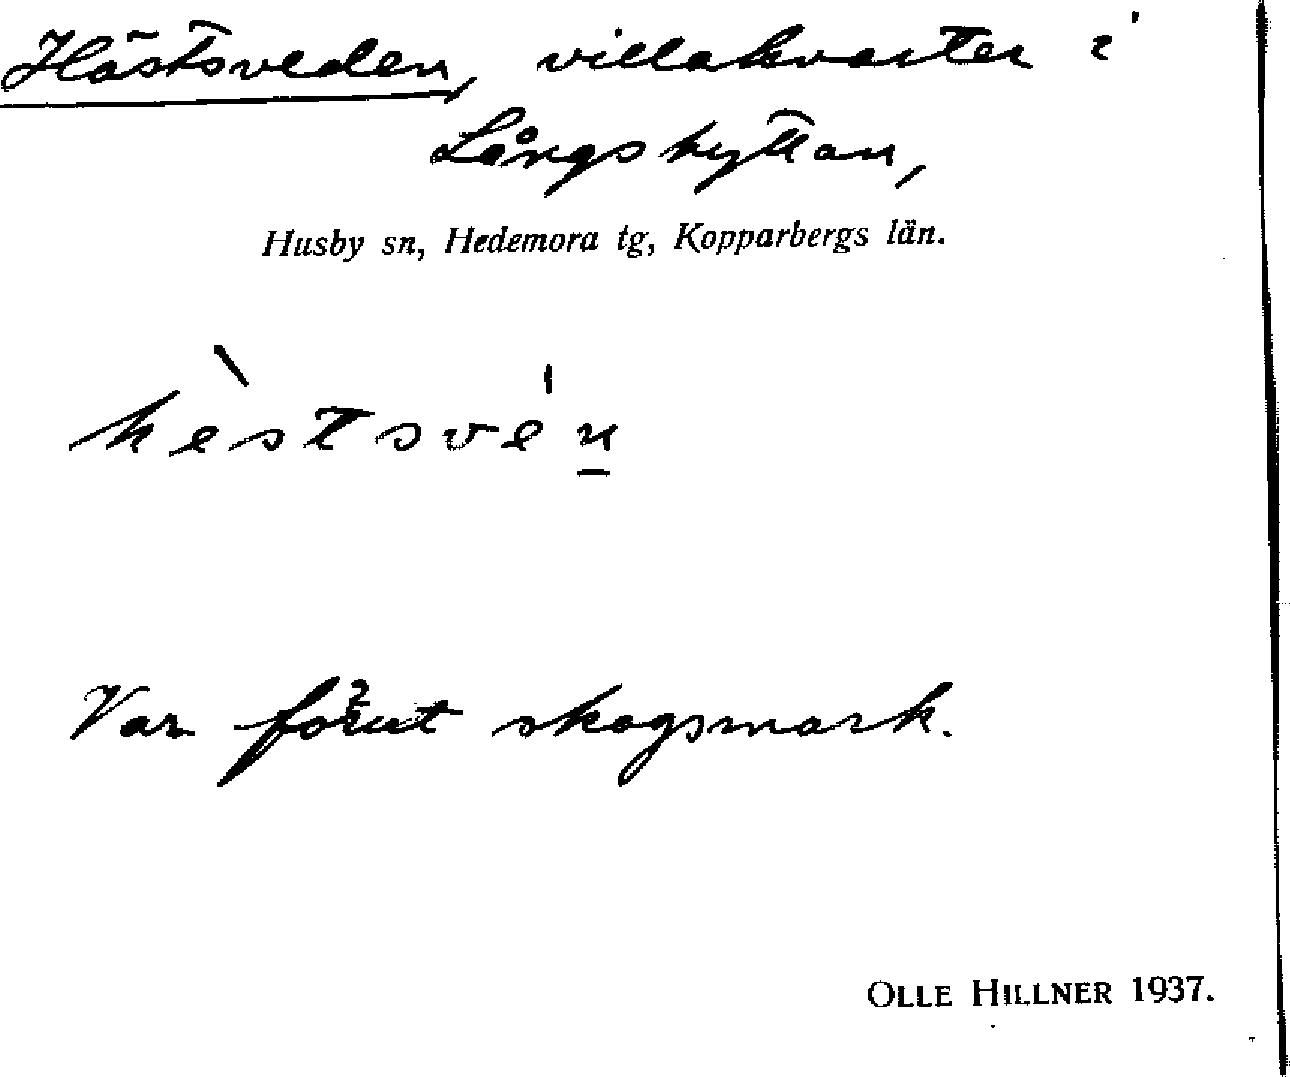 Hästsveden, villakvarter i
Långshyttan,
Husby sn, Hedemora tg, Kopparbergs län.
hèstsve'n̲
Var förut skogsmark.
OLLE HILLNER 1937.